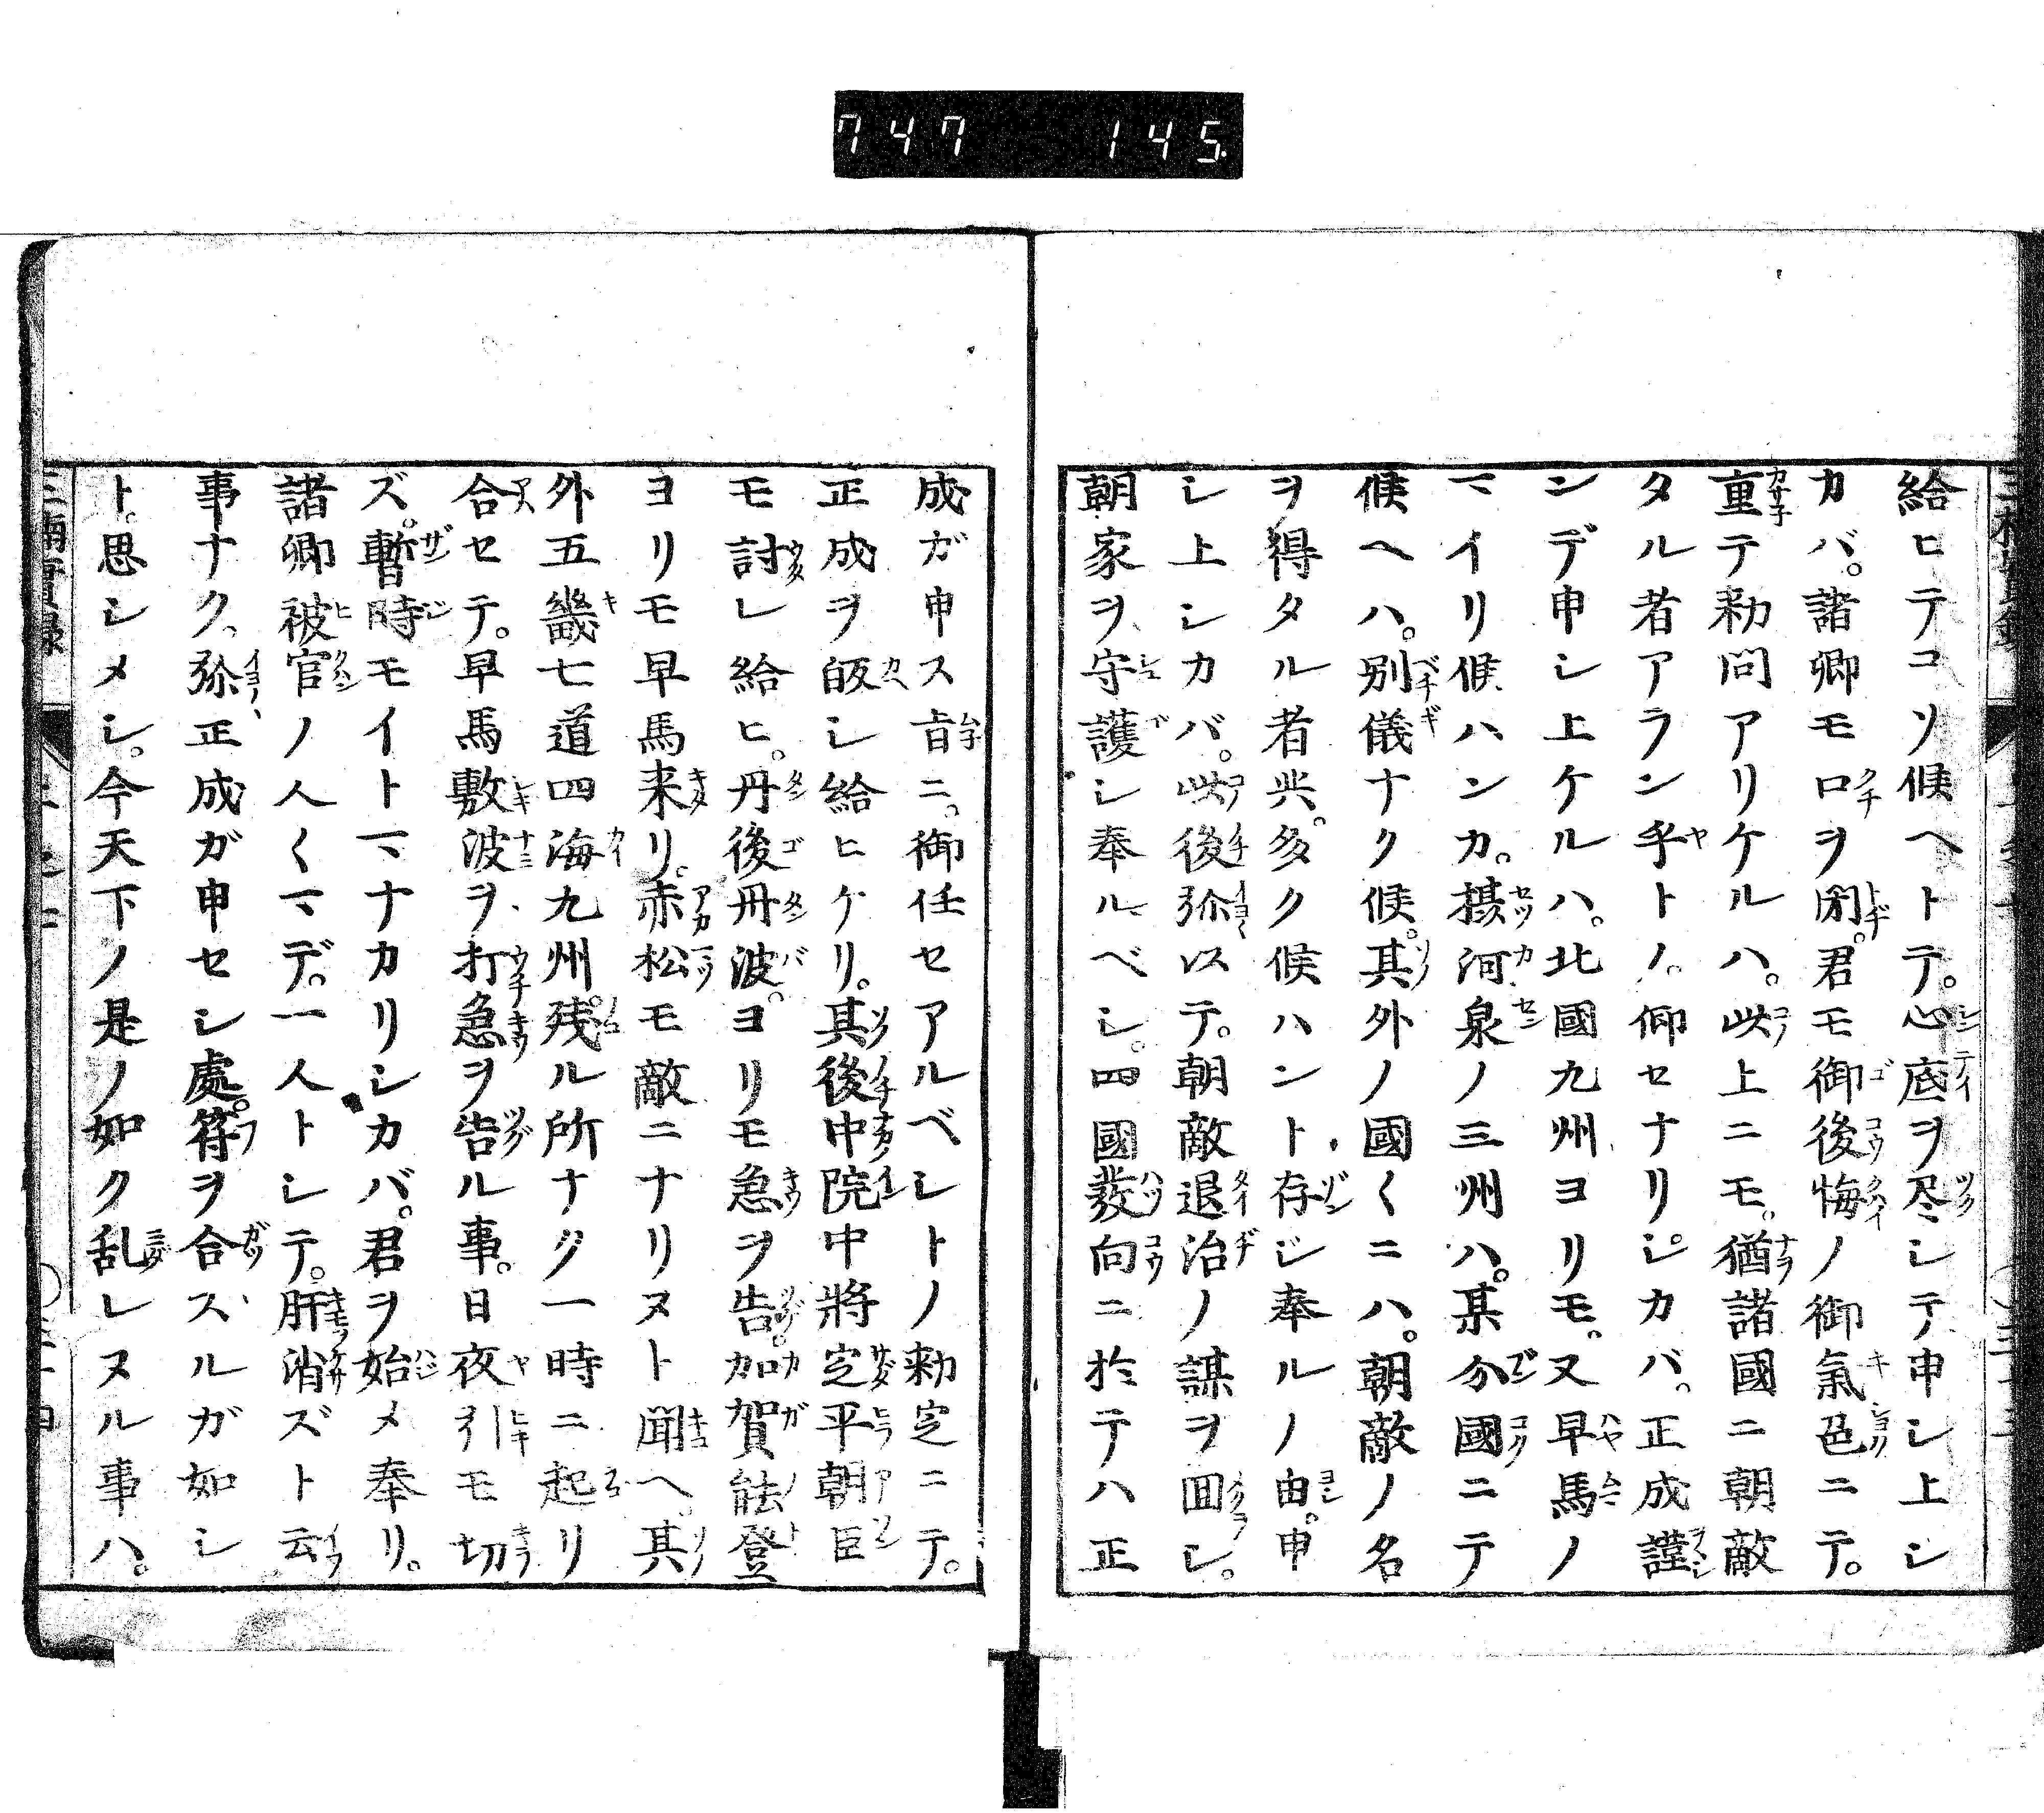 747 145
給ヒテコソ候ヘトテ。心底ヲ尽シテ申シ上シ
カバ。諸卿モ口ヲ閉。君モ御後悔ノ御氣色ニテ。
重テ勅問アリケルハ。此上ニモ。猶諸國ニ朝敵
タル者アラン乎トノ。仰セナリシカバ。正成謹
ンデ申シ上ケルハ。北國九州ヨリモ。又早馬ノ
マイリ候ハンカ。摂河泉ノ三州ハ。某分國ニテ
候ヘハ。別儀ナク候。其外ノ國〱ニハ。朝敵ノ名
ヲ得タル者共。多ク候ハント存ジ奉ルノ由。申
シ上シカバ。此後弥以テ。朝敵退治ノ謀ヲ回シ。
朝家ヲ守護シ奉ルベシ。四國發向ニ於テハ正
成ガ申ス旨ニ。御任セアルベシトノ勅定ニテ。
正成ヲ皈シ給ヒケリ。其後中院中將定平朝臣
モ討レ給ヒ。丹後丹波。ヨリモ急ヲ告。加賀能登
ヨリモ早馬来リ。赤松モ敵ニナリヌト聞ヘ。其
外五畿七道四海九州残ル所ナク一時ニ起リ
合セテ。早馬敷波ヲ打急ヲ告ル事。日夜引モ切
ズ。暫時モイトマナカリシカバ。君ヲ始メ奉リ。
諸卿被官ノ人〱マデ。一人トシテ。肝消ズト云
事ナク。弥正成ガ申セシ處。符ヲ合スルガ如シ
ト。思シメシ。今天下ノ是ノ如ク乱レヌル事ハ。